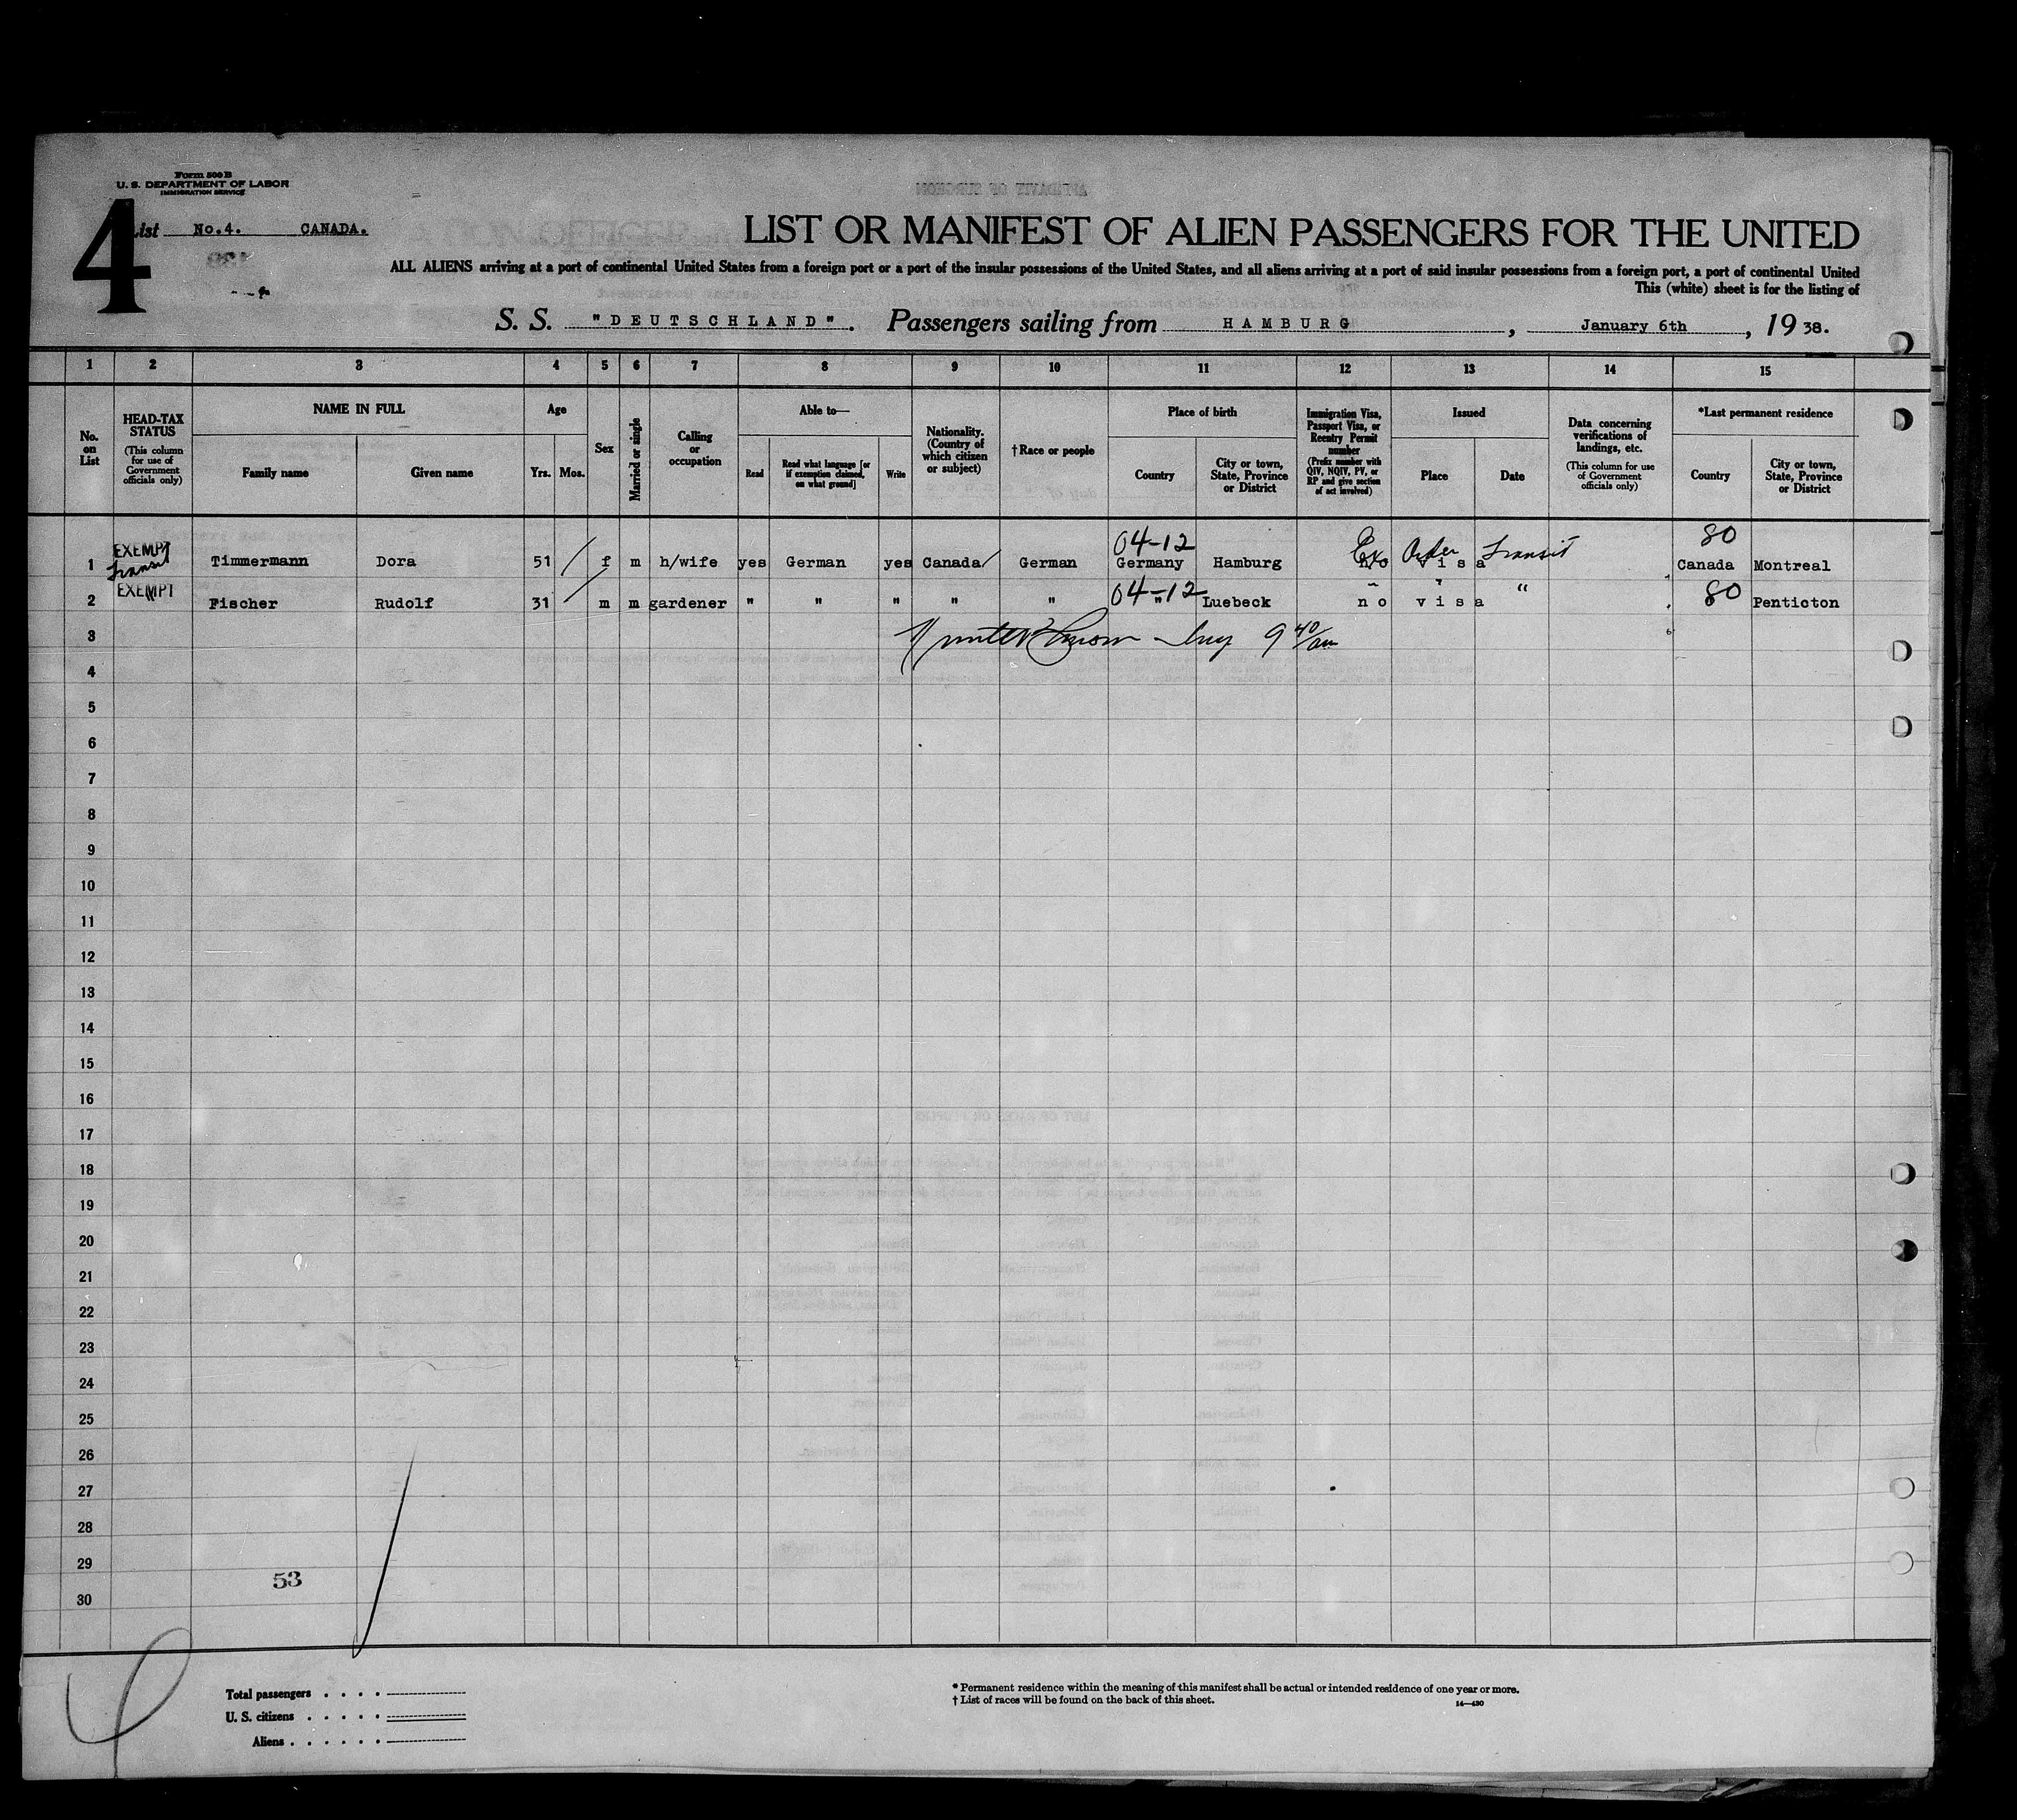 Form 500 B
U. S. DEPARTMENT OF LABOR
IMMIGRATION SERVICE
4
List No.4. CANADA.
LIST OR MANIFEST OF ALIEN PASSENGERS FOR THE UNITED
ALL ALIENS arriving at a port of continental United States from a foreign port or a port of the insular possessions of the United States, and all aliens arriving at a port of said insular possessions from a foreign port, a port of continental United
This (white) sheet is for the listing of
S. S. "DEUTSCHLAND". Passengers sailing from HAMBURG, January 6th, 1938.
1 2 3 4 5 6 7 8 9 10 11 12 13 14 15
No. on List
HEAD-TAX STATUS (This column for use of Government officials only)
NAME IN FULL
Family name
Given name
Age
Yrs. Mos.
Sex
Married or single
Calling or occupation
Able to—
Read
Read what language [or if exemption claimed, on what ground]
Write
Nationality. (Country of which citizen or subject)
† Race or people
Place of birth
Country
City or town, State, Province or District
Immigration Visa, Passport Visa, or Reentry Permit number (Prefix number with QIV, NQIV, PV, or RP and give section of act involved)
Issued
Place
Date
Data concerning verifications of landings, etc. (This column for use of Government officials only)
*Last permanent residence
Country
City or town, State, Province or District
EXEMPT 04-12 80
1 Transit Timmermann Dora 51 f m h/wife yes German yes Canada German Germany Hamburg Ex Order Transit no visa Canada Montreal
EXEMPT 04-12 80
2 Fischer Rudolf 31 m m gardener " " " " " " Luebeck no visa " Penticton
3 9 40/am
4
5
6
7
8
9
10
11
12
13
14
15
16
17
18
19
20
21
22
23
24
25
26
27
28
29
53
30
Total passengers . . . .
U. S. citizens . . . . .
Aliens . . . . . .
* Permanent residence within the meaning of this manifest shall be actual or intended residence of one year or more.
† List of races will be found on the back of this sheet. 14—430